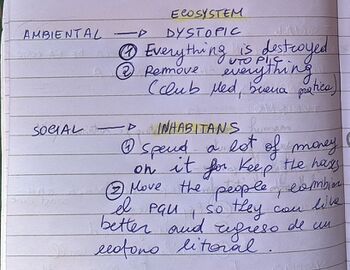 ECOSYSTEM
AMBIENTAL → DYSTOPIC
① Everything is destroyed
UTOPIC
② Remove everything
(Club Med, buena practica)
SOCIAL → INHABITANS
① Spend a lot of money
on it for keep the
② Move the people, cambiar
el PGU, so they can live
better and regreso de un
litoral.